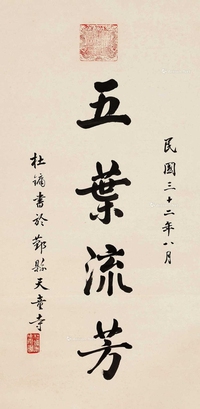 民國三十二年八月
五葉流芳
杜鏞書於鄞縣天童寺